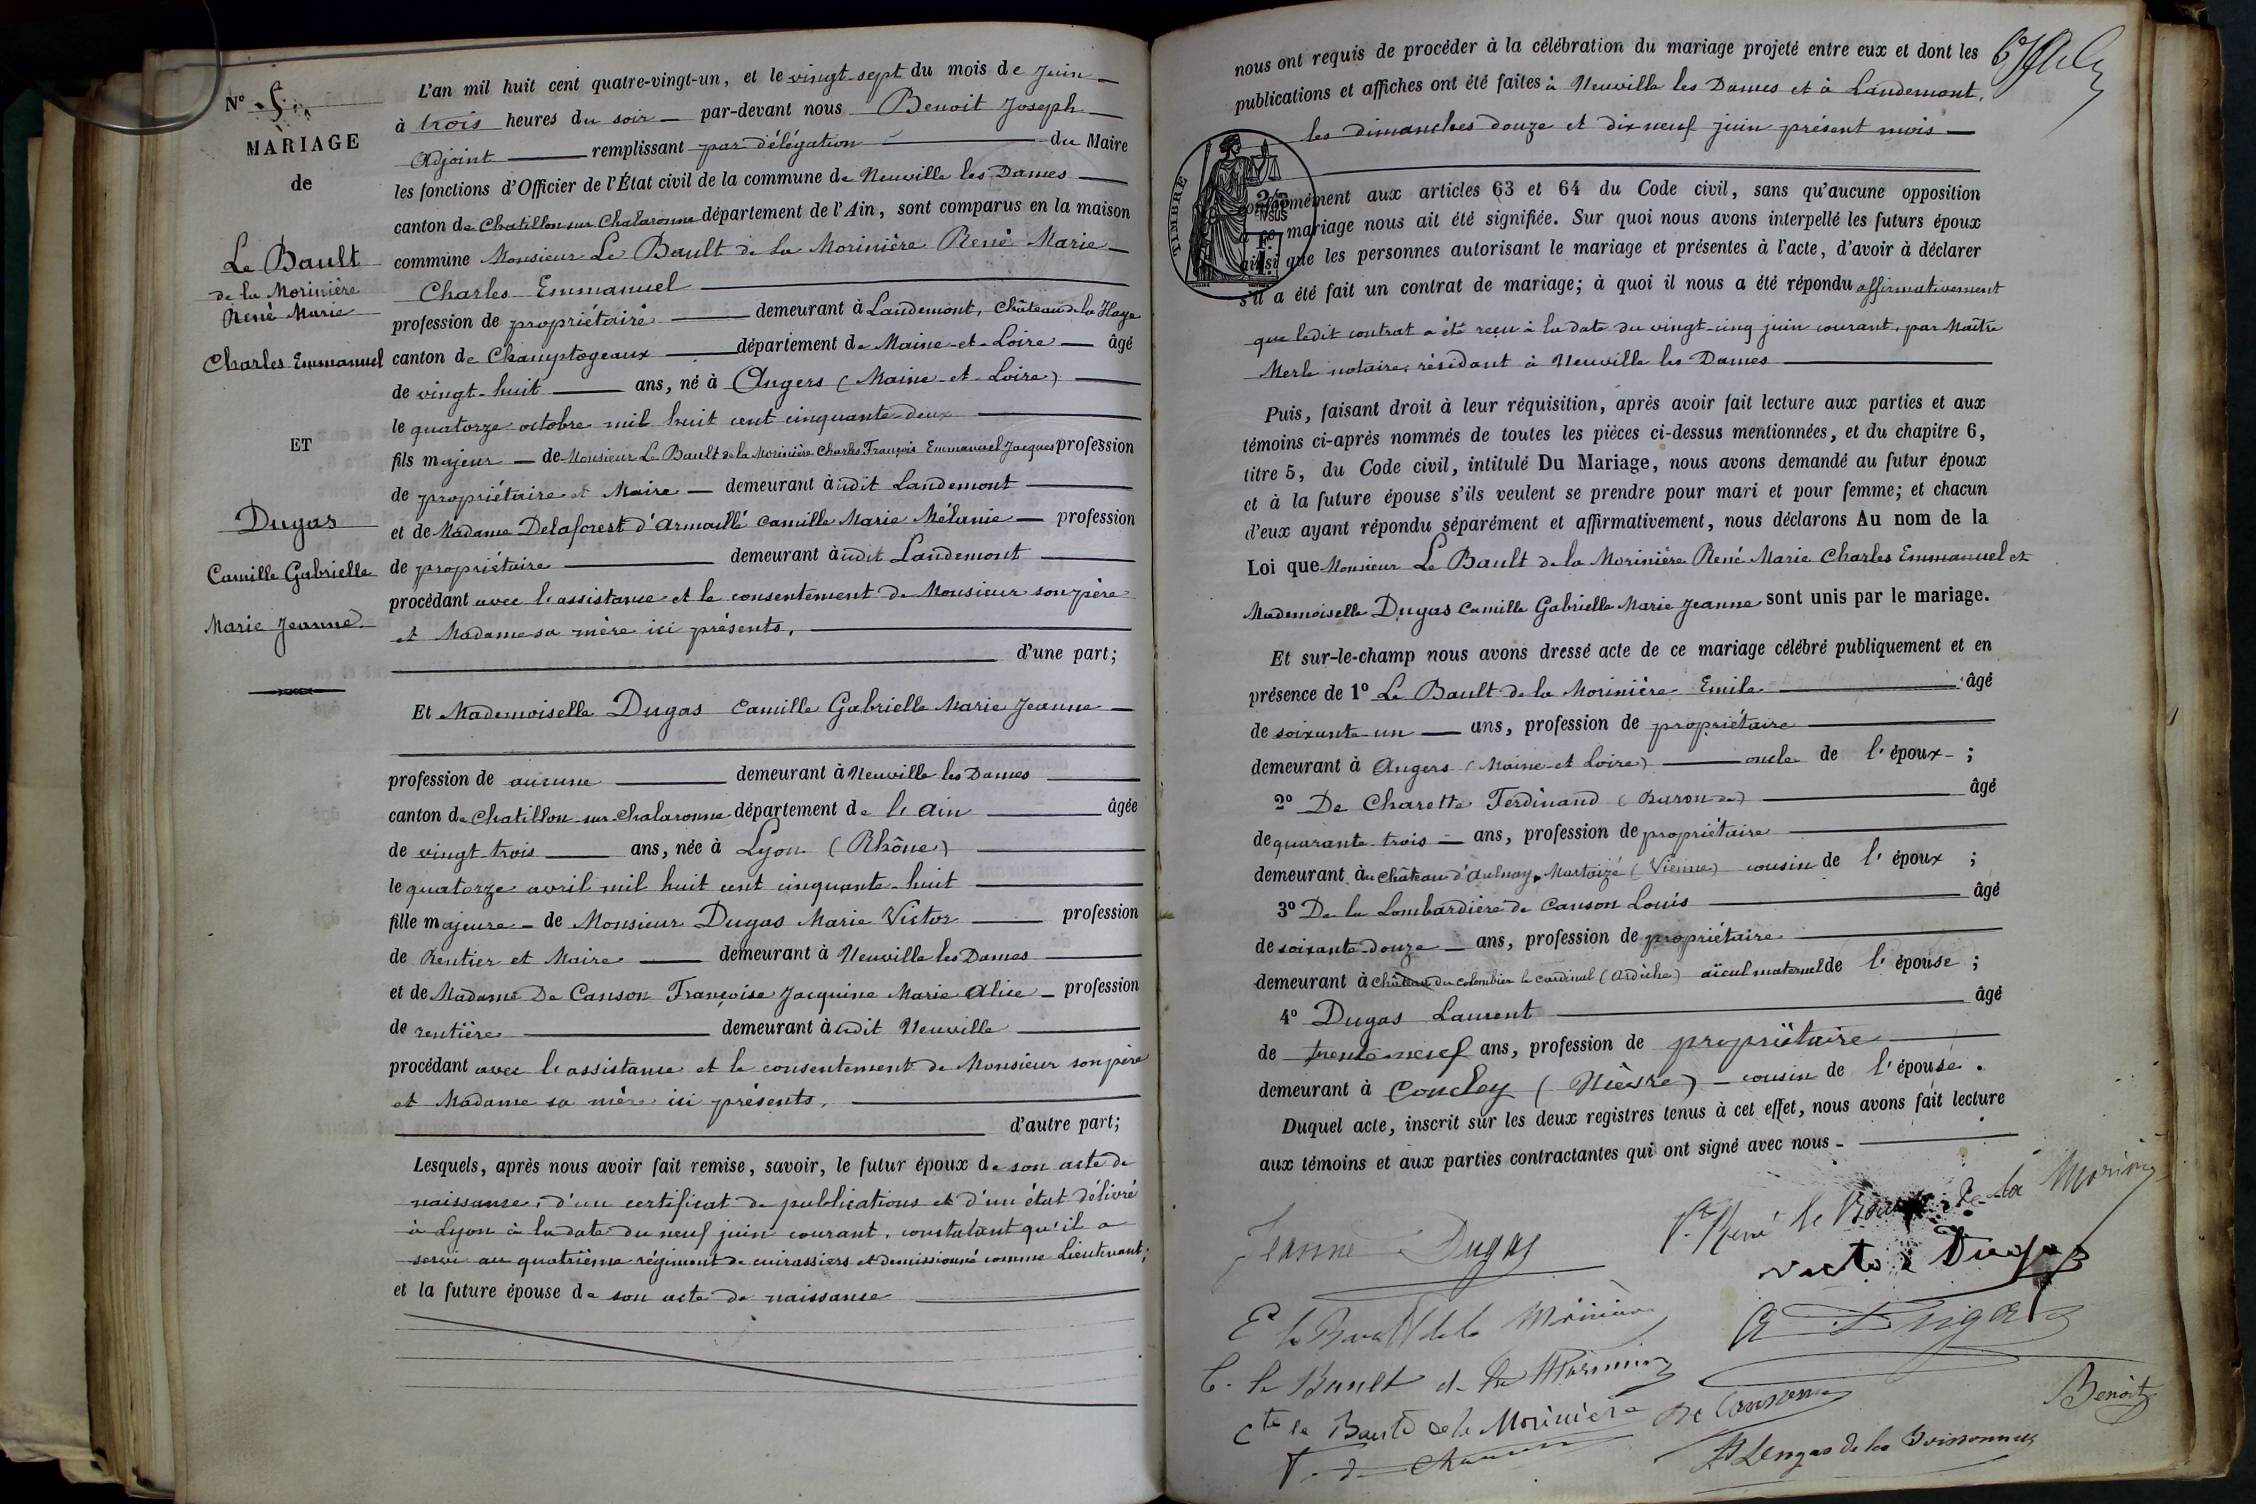 N° 5
MARIAGE
de
Le Bault
de la Morinière
René Marie
Charles Emmanuel
ET
Dugas
Camille Gabrielle
Marie Jeanne
L'an mil huit cent quatre-vingt-un, et le vingt-sept du mois de Juin
à trois heures du soir par-devant nous Benoit Joseph
Adjoint remplissant par délégation du Maire
les fonctions d'Officier de l'État civil de la commune de Neuville les Dames
canton de Chatillon sur Chalaronne département de l'Ain, sont comparus en la maison
commune Monsieur Le Bault de la Morinière René Marie
Charles Emmanuel
profession de propriétaire demeurant à Landemont, Château de la Haye
canton de Champtogeaux département de Maine-et-Loire âgé
de vingt-huit ans, né à Angers (Maine-et-Loire)
le quatorze octobre mil huit cent cinquante-deux
fils majeur de Monsieur Le Bault de la Morinière Charles François Emmanuel Jacques profession
de propriétaire et Maire demeurant à udit Landemont
et de Madame Delaforest d'Armaillé Camille Marie Mélanie profession
de propriétaire demeurant à udit Landemont
procédant avec l'assistance et le consentement de Monsieur son père
et Madame sa mère ici présents,
d'une part;
Et Mademoiselle Dugas Camille Gabrielle Marie Jeanne
profession de aucune demeurant à Neuville les Dames
canton de Chatillon-sur-Chalaronne département de l'Ain âgée
de vingt-trois ans, née à Lyon (Rhône)
le quatorze avril mil huit cent cinquante-huit
fille majeure de Monsieur Dugas Marie Victor profession
de Rentier et Maire demeurant à Neuville les Dames
et de Madame De Canson Françoise Jacquine Marie Alice profession
de rentière demeurant à udit Neuville
procédant avec l'assistance et le consentement de Monsieur son père
et Madame sa mère ici présents,
d'autre part;
Lesquels, après nous avoir fait remise, savoir, le futur époux de son acte de
naissance, d'un certificat de publications et d'un état délivré
à Lyon à la date du neuf juin courant, constatant qu'il a
servi au quatrième régiment de cuirassiers et demissionné comme Lieutenant;
et la future épouse de son acte de naissance
nous ont requis de procéder à la célébration du mariage projeté entre eux et dont les
publications et affiches ont été faites à Neuville les Dames et à Landemont,
les dimanches douze et dix neuf juin présent mois
TIMBRE
conformément aux articles 63 et 64 du Code civil, sans qu'aucune opposition
à ce mariage nous ait été signifiée. Sur quoi nous avons interpellé les futurs époux
ainsi que les personnes autorisant le mariage et présentes à l'acte, d'avoir à déclarer
s'il a été fait un contrat de mariage; à quoi il nous a été répondu affirmativement
que ledit contrat a été reçu à la date du vingt-cinq juin courant, par Maître
Merle notaire, résidant à Neuville les Dames
Puis, faisant droit à leur réquisition, après avoir fait lecture aux parties et aux
témoins ci-après nommés de toutes les pièces ci-dessus mentionnées, et du chapitre 6,
titre 5, du Code civil, intitulé Du Mariage, nous avons demandé au futur époux
et à la future épouse s'ils veulent se prendre pour mari et pour femme; et chacun
d'eux ayant répondu séparément et affirmativement, nous déclarons Au nom de la
Loi que Monsieur Le Bault de la Morinière René Marie Charles Emmanuel et
Mademoiselle Dugas Camille Gabrielle Marie Jeanne sont unis par le mariage.
Et sur-le-champ nous avons dressé acte de ce mariage célébré publiquement et en
présence de 1° Le Bault de la Morinière Emile âgé
de soixante un ans, profession de propriétaire
demeurant à Angers (Maine-et-Loire) oncle de l'époux ;
2° De Charette Ferdinand (Baron de) âgé
de quarante trois ans, profession de propriétaire
demeurant àu château d'Aulnay Martaizé (Vienne) cousin de l'époux ;
3° De la Lombardière de Canson Louis âgé
de soixante-douze ans, profession de propriétaire
demeurant à château du Colombier le Cardinal (Ardèche) aïeul maternel de l'épouse ;
4° Dugas Laurent âgé
de trente-neuf ans, profession de propriétaire
demeurant à Concley (Nièvre) cousin de l'épouse.
Duquel acte, inscrit sur les deux registres tenus à cet effet, nous avons fait lecture
aux témoins et aux parties contractantes qui ont signé avec nous
Vte René le Bault de la Morinière
Jeanne Dugas
Victor Dugas
E le Bault de la Morinière
A Dugas
C. le Bault de la Morinière
Benoit
Cte le Bault de la Morinière
De Canson